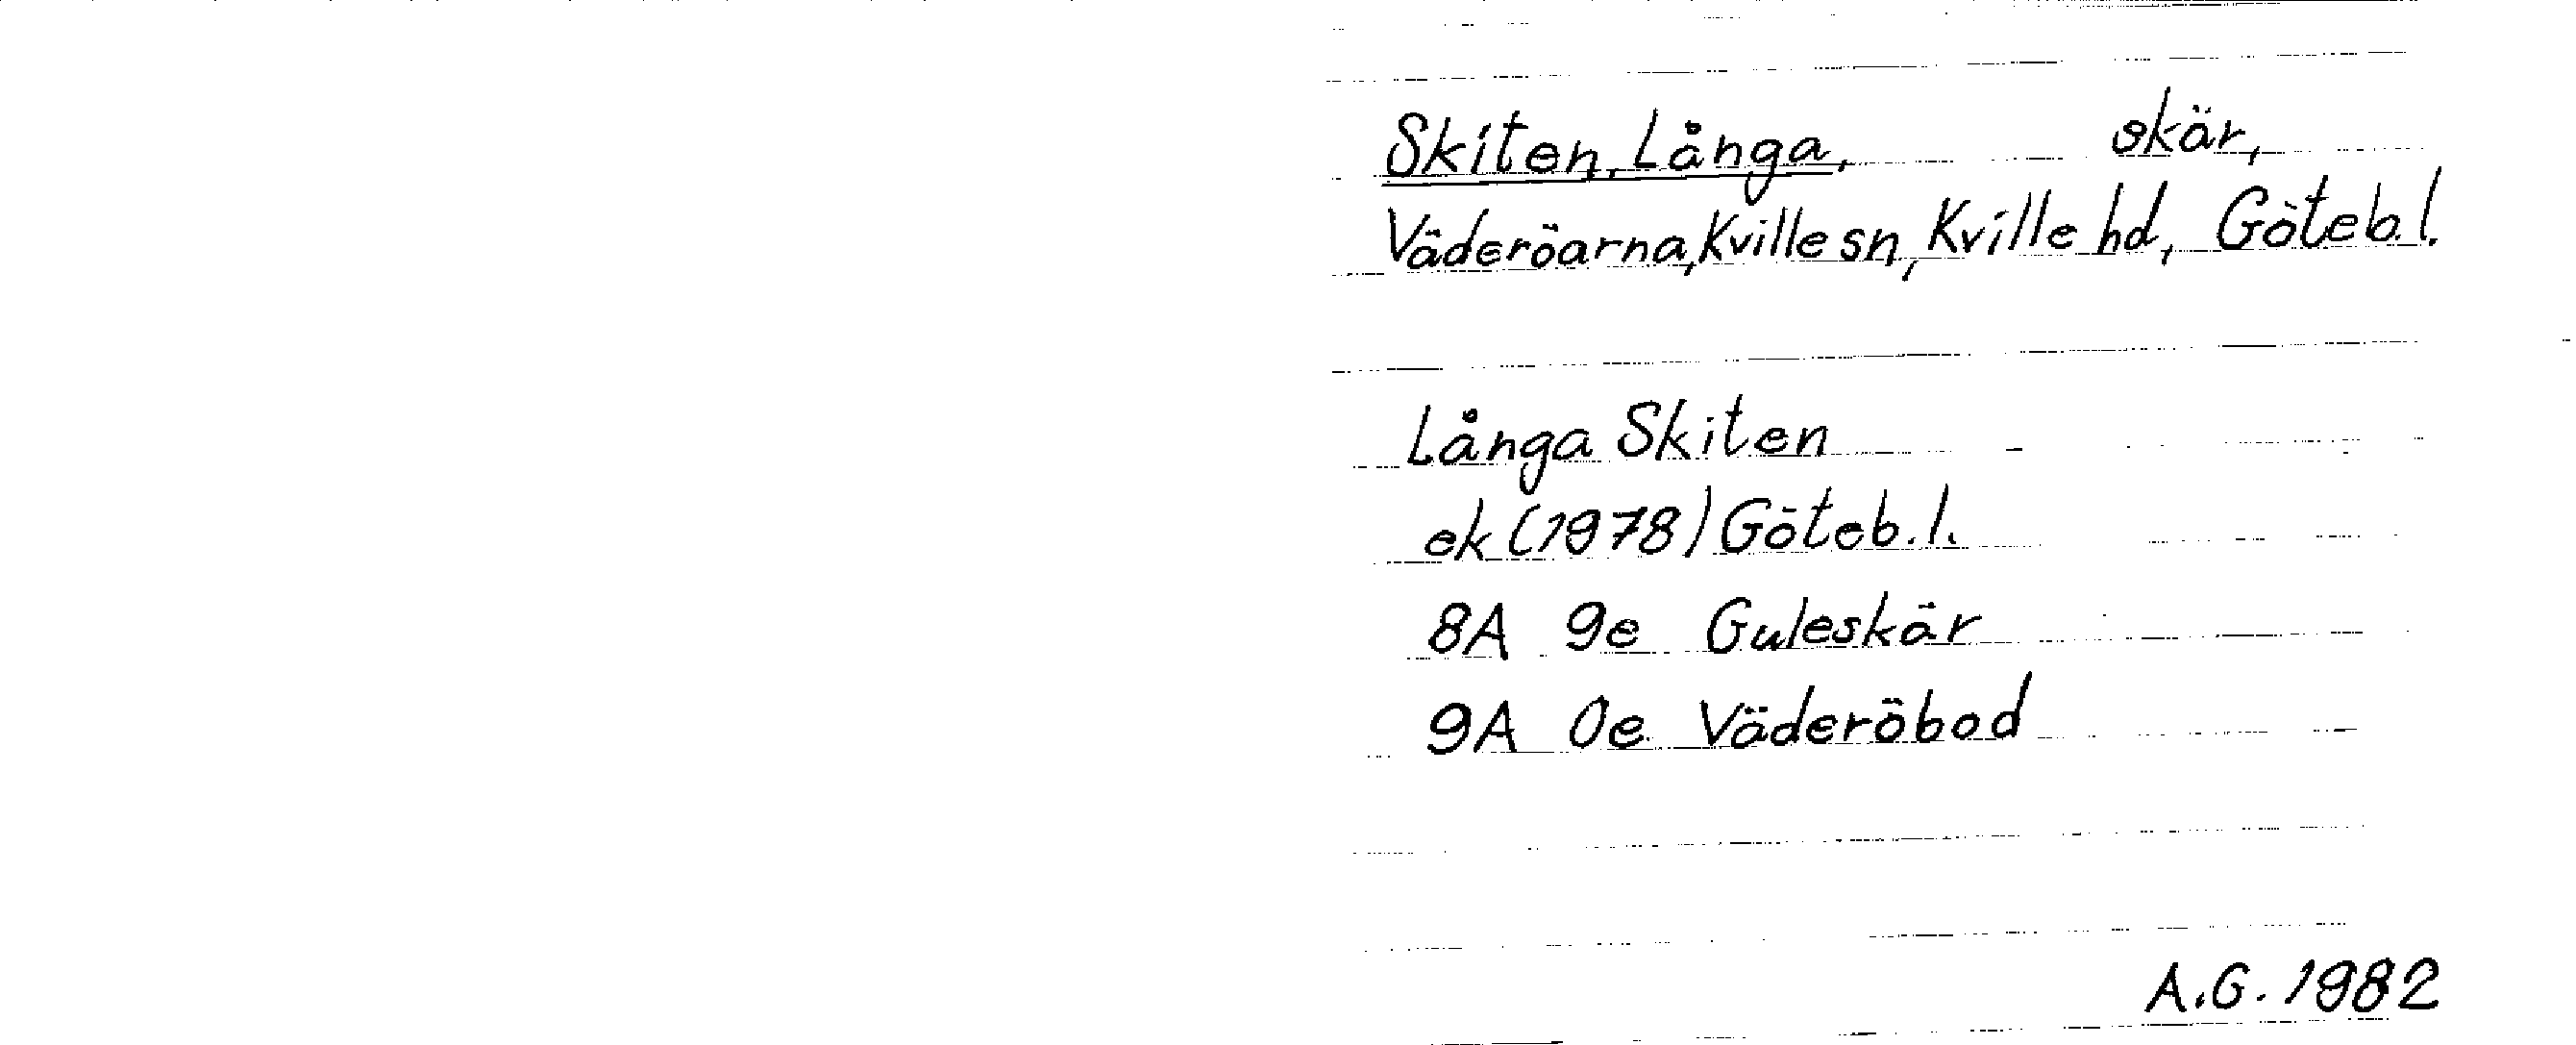 Skiten, Långa, skär,
Väderöarna, Kville sn, Kville hd, Göteb. l.
Långa Skiten
ek (1978) Göteb. l.
8A 9e Guleskär
9A 0e Väderöbod
A.G. 1982